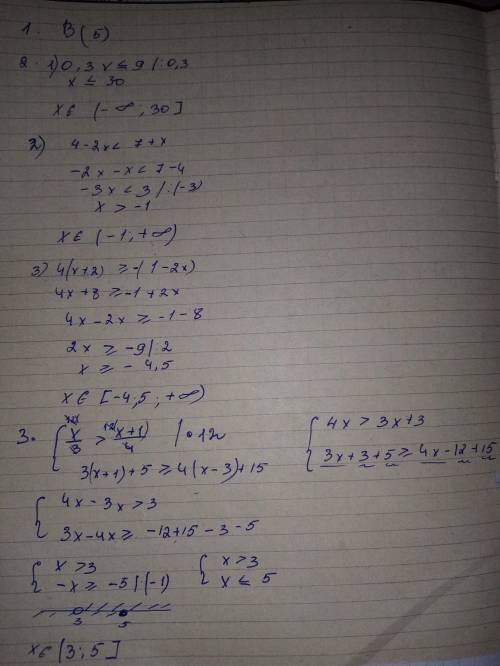 1. B (5)
2. 1) 0,3x ≤ 9 |:0,3
x ≤ 30
x ∈ (-∞, 30]
2) 4-2x < 7+x
-2x-x < 7-4
-3x < 3 |:(-3)
x > -1
x ∈ (-1; +∞)
3) 4(x+2) ≥ -(1-2x)
4x+8 ≥ -1+2x
4x-2x ≥ -1-8
2x ≥ -9 |:2
x ≥ -4,5
x ∈ [-4,5; +∞)
3. { x/3 > (x+1)/4 |•12 { 4x > 3x+3
3(x+1)+5 ≥ 4(x-3)+15 3x+3+5 ≥ 4x-12+15
{ 4x-3x > 3
3x-4x ≥ -12+15-3-5
{ x > 3 { x > 3
-x ≥ -5 |(-1) x ≤ 5
3 5
x ∈ (3; 5]